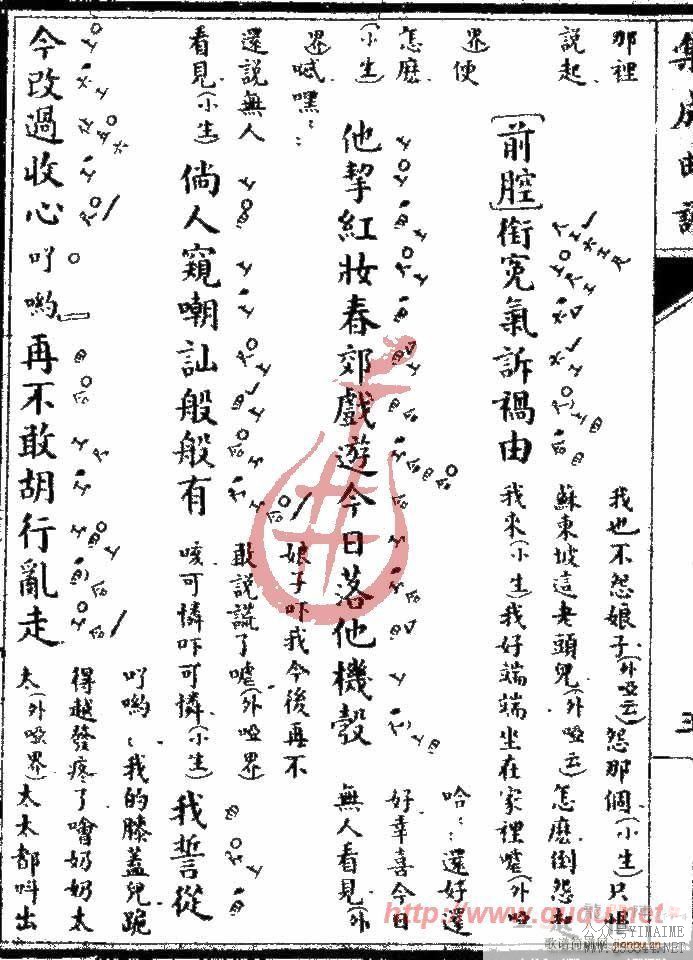 集成曲譜
三
那裡
說起
[前腔]銜冤氣訴禍由
我也不怨娘子(外啞云)怨那個(小生)只恨
蘇東坡這老頭兒(外啞云)怎麼倒怨起
我來(小生)我好端端坐在家裡(外啞
界便
怎麽
(小生)他挈紅妝春郊戲遊今日落他機彀
哈:還好還
好幸喜今日
無人看見(外
界喊嘿::
還說無人
看見(小生)倘人窺嘲訕般般有
娘子吓我今後再不
敢說謊了嘘(外啞界
咳可憐吓可憐(小生)我誓從
今改過收心吖喲再不敢胡行亂走
吖喲:我的膝蓋兒跪
得越發疼了噲奶奶太
太(外啞界)太太都呌出
http://www.ququ.net
YIMAIME
歌谱简谱网 jianpu.cn